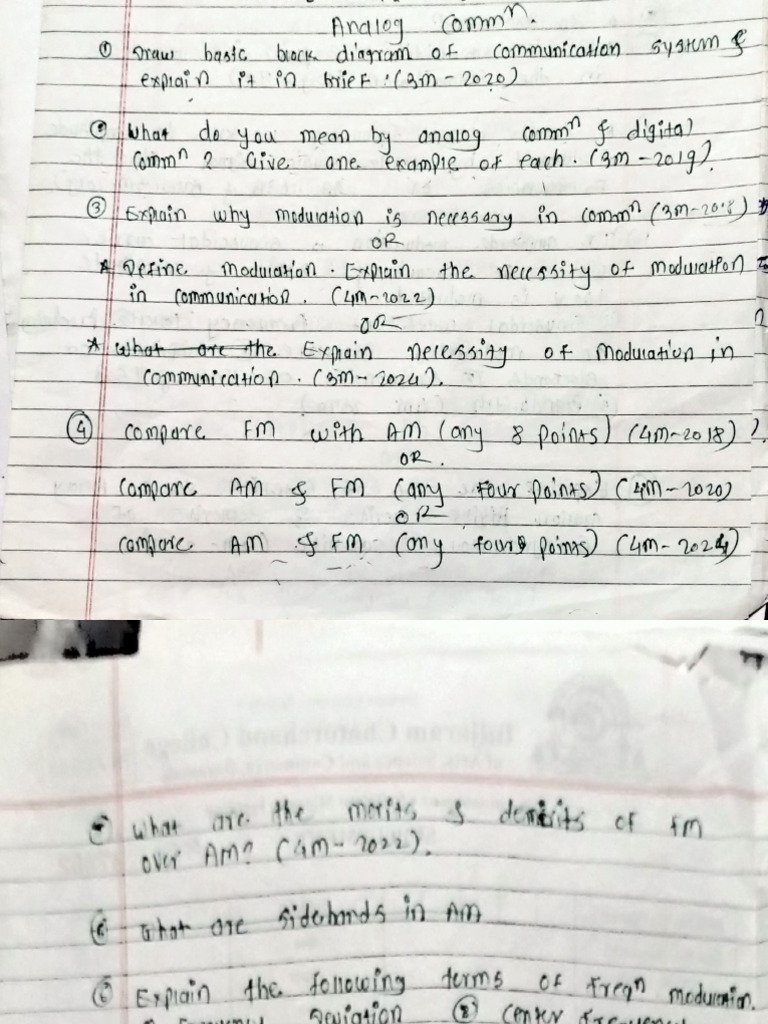 Analog Commⁿ.
① Draw basic block diagram of communication system &
explain it in brief. (3m-2020)
② What do you mean by analog commⁿ & digital
commⁿ? Give one example of each. (3m-2019).
③ Explain why modulation is necessary in commⁿ (3m-2018)
OR
* Define modulation. Explain the necessity of modulation
in communication. (4m-2022)
OR
* What are the Explain necessity of modulation in
communication. (3m-2024).
④ Compare FM with AM (any 8 points) (4m-2018)
OR.
Compare AM & FM (any four points) (4M-2020)
OR
Compare AM & FM (any four points) (4m-2024)
What are the merits & demerits of FM
over AM? (4m-2022).
⑥ What are sidebands in AM
⑥ Explain the following terms of freqⁿ modulation.
deviation ② center